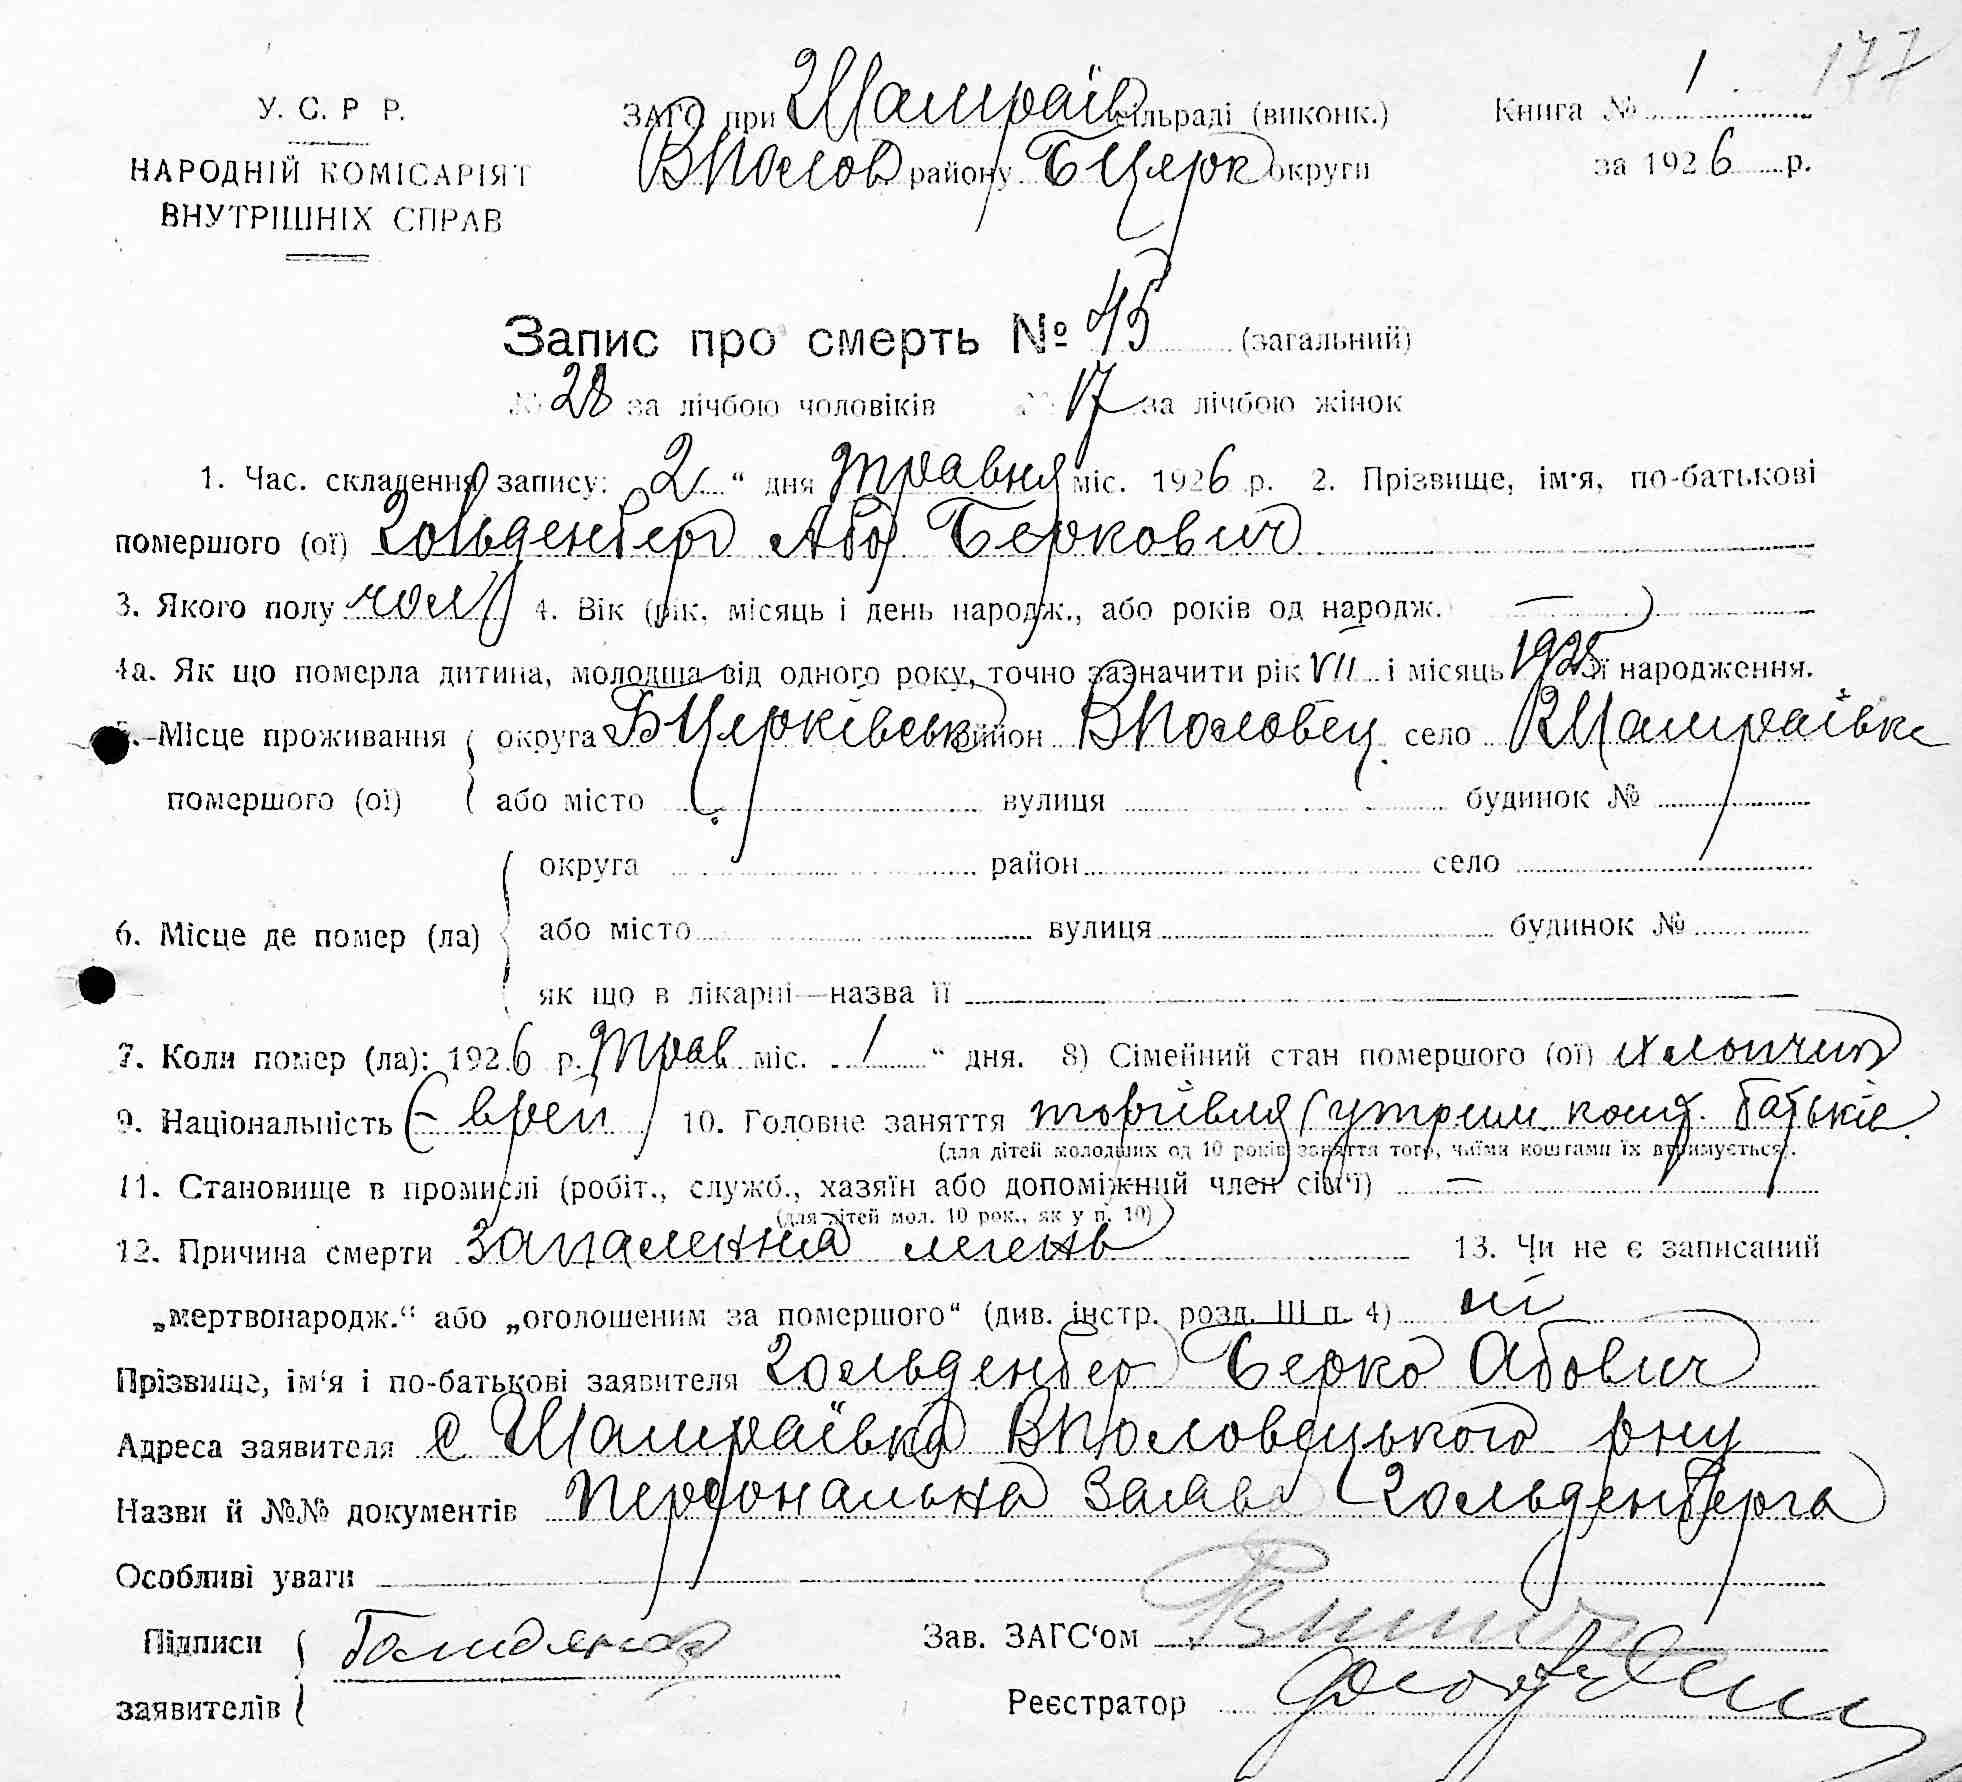 177
У. С. Р. Р.
НАРОДНІЙ КОМІСАРІЯТ
ВНУТРІШНІХ СПРАВ
ЗАГС при Шамраїв сільраді (виконк.)
ВПолов району БЦерк округи
Книга № 1
за 1926 р.
Запис про смерть № 45 (загальний)
№ 28 за лічбою чоловіків № 17 за лічбою жінок
1. Час. складення запису: 2 " дня травня міс. 1926 р. 2. Прізвище, ім'я, по-батькові
помершого (ої) Гольденберг Аба Беркович
3. Якого полу чол 4. Вік (рік, місяць і день народж., або років од народж.) —
4а. Як що померла дитина, молодша від одного року, точно зазначити рік VII і місяць 1925 її народження.
5. Місце проживання округа БЦерківськ район ВПоловец. село ВШамраївка
помершого (ої) або місто вулиця будинок №
округа район село
6. Місце де помер (ла) або місто вулиця будинок №
як що в лікарні—назва її
7. Коли помер (ла): 1926 р. трав міс. 1 " дня. 8) Сімейний стан помершого (ої) хлопчик
9. Національність Еврей 10. Головне заняття торгівля утрим. кошт. батьків.
(для дітей молодших од 10 років заняття того, чиїми коштами їх втримується).
11. Становище в промислі (робіт., служб., хазяїн або допоміжний член сім'ї) —
(для дітей мол. 10 рок., як у п. 10)
12. Причина смерти запалення легень 13. Чи не є записаний
„мертвонародж.“ або „оголошеним за помершого“ (див. інстр. розд. ІІІ п. 4) ні
Прізвище, ім'я і по-батькові заявителя Гольденберг Берко Абович
Адреса заявителя с Шамраївка ВПоловецького рну
Назви й №№ документів персональна заява Гольденберга
Особливі уваги
Підписи
заявителів
Зав. ЗАГС'ом
Реєстратор